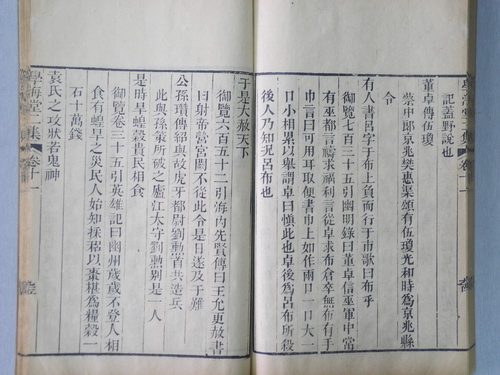 記蓋野說也
董卓傳伍瓊
蔡中郎京兆樊惠渠頌有伍瓊光和時為京兆縣
令
有人書呂字于布上負而行于市歌曰布乎
御覽七百三十五引幽明錄曰董卓信巫軍中常
有巫都言禱求福利言從卓求布倉卒無布有手
巾言曰可用耳取便書巾上如作兩口一口大一
口小相累以舉謂卓曰愼此也卓後為呂布所殺
後人乃知況呂布也
于是大赦天下
御覽六百五十二引海內先賢傳曰王允更赦書
曰財帝當宮閉不從此令是日遂及于難
公孫瓚傳紹與故虎牙都尉劉勳首共造兵
此與孫策所破之廬江大守劉勳別是一人
是時旱蝗穀貴民相食
御覽卷三十五引英雄記曰幽州歲歲不登人相
食有蝗旱之災民人始知採稆以棗椹為糧穀一
石十萬錢
袁氏之攻狀若鬼神
學海堂二集 卷十一